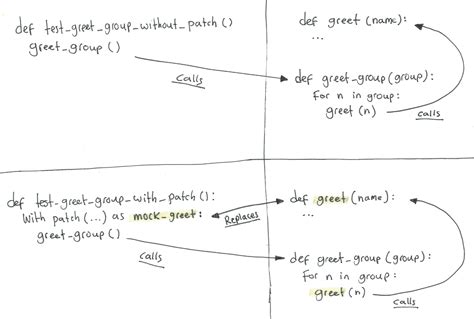 def test_greet_group_without_patch()
greet_group()
calls
def greet(name):
...
def greet_group(group):
For n in group:
greet(n)
calls
def test_greet_group_with_patch():
With patch(...) as mock_greet:
greet_group()
Replaces
calls
def greet(name):
...
def greet_group(group):
For n in group:
greet(n)
calls